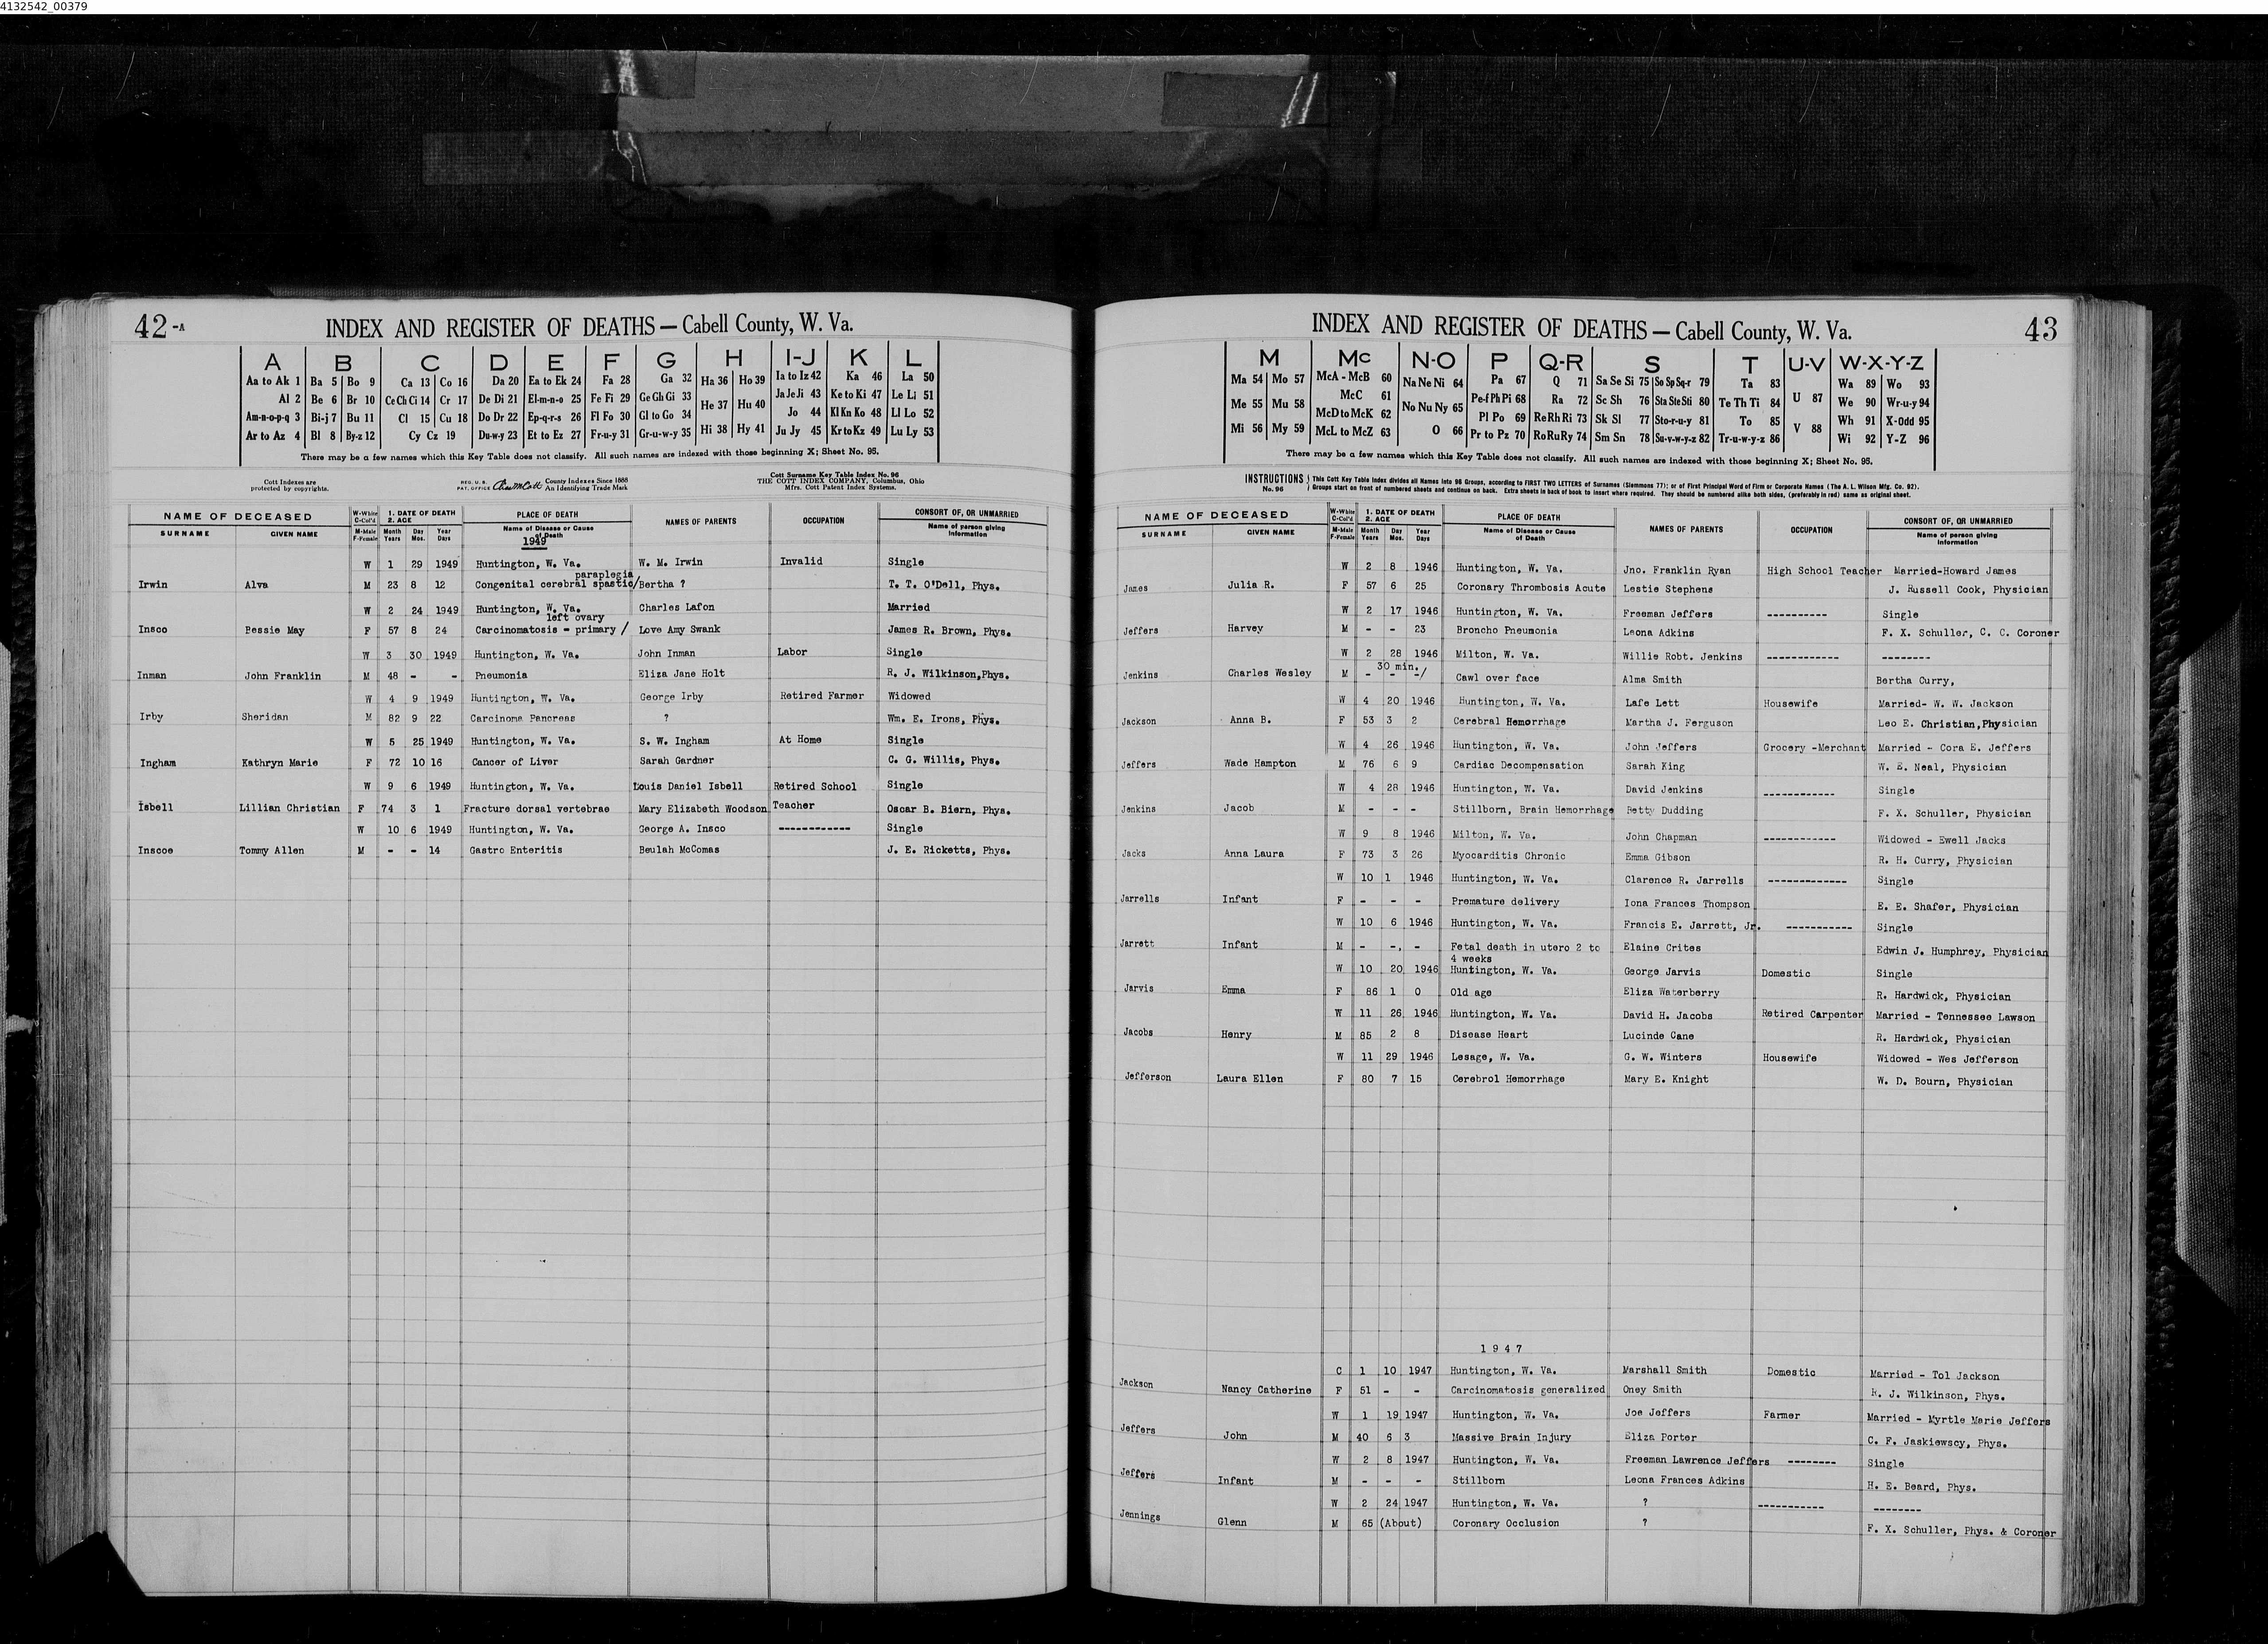 4132542_00379
42-A
INDEX AND REGISTER OF DEATHS — Cabell County, W. Va.
A B C D E F G H I-J K L
Aa to Ak 1 Ba 5 Bo 9 Ca 13 Co 16 Da 20 Ea to Ek 24 Fa 28 Ga 32 Ha 36 Ho 39 Ia to Iz 42 Ka 46 La 50
Al 2 Be 6 Br 10 Ce Ch Ci 14 Cr 17 De Di 21 El-m-n-o 25 Fe Fi 29 Ge Gh Gi 33 He 37 Hu 40 Ja Je Ji 43 Ke to Ki 47 Le Li 51
Am-n-o-p-q 3 Bi-j 7 Bu 11 Cl 15 Cu 18 Do Dr 22 Ep-q-r-s 26 Fl Fo 30 Gl to Go 34 Hi 38 Hy 41 Jo 44 Kl Kn Ko 48 Ll Lo 52
Ar to Az 4 Bl 8 By-z 12 Cy Cz 19 Du-w-y 23 Et to Ez 27 Fr-u-y 31 Gr-u-w-y 35 Ju Jy 45 Kr to Kz 49 Lu Ly 53
There may be a few names which this Key Table does not classify. All such names are indexed with those beginning X; Sheet No. 95.
Cott Indexes are protected by copyrights.
REG. U. S. PAT. OFFICE County Indexes Since 1888 An Identifying Trade Mark
Cott Surname Key Table Index No. 96
THE COTT INDEX COMPANY, Columbus, Ohio
Mfrs. Cott Patent Index Systems.
NAME OF DECEASED W-White C-Col'd 1. DATE OF DEATH 2. AGE PLACE OF DEATH NAMES OF PARENTS OCCUPATION CONSORT OF, OR UNMARRIED
SURNAME GIVEN NAME M-Male F-Female Month Years Day Mos. Year Days Name of Disease or Cause of Death Name of person giving Information
1949
W 1 29 1949 Huntington, W. Va. W. M. Irwin Invalid Single
paraplegia
Irwin Alva M 23 8 12 Congenital cerebral spastic/ Bertha ? T. T. O'Dell, Phys.
W 2 24 1949 Huntington, W. Va. Charles Lafon Married
left ovary
Insco Bessie May F 57 8 24 Carcinomatosis - primary / Love Amy Swank James R. Brown, Phys.
W 3 30 1949 Huntington, W. Va. John Inman Labor Single
Inman John Franklin M 48 - - Pneumonia Eliza Jane Holt R. J. Wilkinson,Phys.
W 4 9 1949 Huntington, W. Va. George Irby Retired Farmer Widowed
Irby Sheridan M 82 9 22 Carcinoma Pancreas ? Wm. E. Irons, Phys.
W 5 25 1949 Huntington, W. Va. S. W. Ingham At Home Single
Ingham Kathryn Marie F 72 10 16 Cancer of Liver Sarah Gardner C. G. Willis, Phys.
W 9 6 1949 Huntington, W. Va. Louis Daniel Isbell Retired School Single
Isbell Lillian Christian F 74 3 1 Fracture dorsal vertebrae Mary Elizabeth Woodson Teacher Oscar B. Biern, Phys.
W 10 6 1949 Huntington, W. Va. George A. Insco ------------ Single
Inscoe Tommy Allen M - - 14 Gastro Enteritis Beulah McComas J. E. Ricketts, Phys.
INDEX AND REGISTER OF DEATHS — Cabell County, W. Va.
43
M Mc N-O P Q-R S T U-V W-X-Y-Z
Ma 54 Mo 57 McA - McB 60 Na Ne Ni 64 Pa 67 Q 71 Sa Se Si 75 So Sp Sq-r 79 Ta 83 U 87 Wa 89 Wo 93
Me 55 Mu 58 McC 61 No Nu Ny 65 Pe-f Ph Pi 68 Ra 72 Sc Sh 76 Sta Ste Sti 80 Te Th Ti 84 V 88 We 90 Wr-u-y 94
Mi 56 My 59 McD to McK 62 O 66 Pl Po 69 Re Rh Ri 73 Sk Sl 77 Sto-r-u-y 81 To 85 Wh 91 X-Odd 95
McL to McZ 63 Pr to Pz 70 Ro Ru Ry 74 Sm Sn 78 Su-v-w-y-z 82 Tr-u-w-y-z 86 Wi 92 Y-Z 96
There may be a few names which this Key Table does not classify. All such names are indexed with those beginning X; Sheet No. 95.
INSTRUCTIONS No. 96 This Cott Key Table Index divides all Names into 96 Groups, according to FIRST TWO LETTERS of Surnames (Slemmons 77); or of First Principal Word of Firm or Corporate Names (The A. L. Wilson Mfg. Co. 92).
Groups start on front of numbered sheets and continue on back. Extra sheets in back of book to insert where required. They should be numbered alike both sides, (preferably in red) same as original sheet.
NAME OF DECEASED W-White C-Col'd 1. DATE OF DEATH 2. AGE PLACE OF DEATH NAMES OF PARENTS OCCUPATION CONSORT OF, OR UNMARRIED
SURNAME GIVEN NAME M-Male F-Female Month Years Day Mos. Year Days Name of Disease or Cause of Death Name of person giving Information
W 2 8 1946 Huntington, W. Va. Jno. Franklin Ryan High School Teacher Married-Howard James
James Julia R. F 57 6 25 Coronary Thrombosis Acute Lestie Stephens J. Russell Cook, Physician
W 2 17 1946 Huntington, W. Va. Freeman Jeffers ---------- Single
Jeffers Harvey M - - 23 Broncho Pneumonia Leona Adkins F. X. Schuller, C. C. Coroner
W 2 28 1946 Milton, W. Va. Willie Robt. Jenkins ------------ --------
30 min.
Jenkins Charles Wesley M - - -/ Cawl over face Alma Smith Bertha Curry,
W 4 20 1946 Huntington, W. Va. Lafe Lett Housewife Married- W. W. Jackson
Jackson Anna B. F 53 3 2 Cerebral Hemorrhage Martha J. Ferguson Leo E. Christian,Physician
W 4 26 1946 Huntington, W. Va. John Jeffers Grocery -Merchant Married - Cora E. Jeffers
Jeffers Wade Hampton M 76 6 9 Cardiac Decompensation Sarah King W. E. Neal, Physician
W 4 28 1946 Huntington, W. Va. David Jenkins ------------ Single
Jenkins Jacob M - - - Stillborn, Brain Hemorrhage Betty Dudding F. X. Schuller, Physician
W 9 8 1946 Milton, W. Va. John Chapman ------------ Widowed - Ewell Jacks
Jacks Anna Laura F 73 3 26 Myocarditis Chronic Emma Gibson R. H. Curry, Physician
W 10 1 1946 Huntington, W. Va. Clarence R. Jarrells ------------- Single
Jarrells Infant F - - - Premature delivery Iona Frances Thompson E. E. Shafer, Physician
W 10 6 1946 Huntington, W. Va. Francis E. Jarrett, Jr. ----------- Single
Jarrett Infant M - -, - Fetal death in utero 2 to Elaine Crites Edwin J. Humphrey, Physician
4 weeks
W 10 20 1946 Huntington, W. Va. George Jarvis Domestic Single
Jarvis Emma F 86 1 0 Old age Eliza Waterberry R. Hardwick, Physician
W 11 26 1946 Huntington, W. Va. David H. Jacobs Retired Carpenter Married - Tennessee Lawson
Jacobs Henry M 85 2 8 Disease Heart Lucinde Cane R. Hardwick, Physician
W 11 29 1946 Lesage, W. Va. G. W. Winters Housewife Widowed - Wes Jefferson
Jefferson Laura Ellen F 80 7 15 Cerebrol Hemorrhage Mary E. Knight W. D. Bourn, Physician
1 9 4 7
C 1 10 1947 Huntington, W. Va. Marshall Smith Domestic Married - Tol Jackson
Jackson Nancy Catherine F 51 - - Carcinomatosis generalized Oney Smith R. J. Wilkinson, Phys.
W 1 19 1947 Huntington, W. Va. Joe Jeffers Farmer Married - Myrtle Marie Jeffers
Jeffers John M 40 6 3 Massive Brain Injury Eliza Porter C. F. Jaskiewscy, Phys.
W 2 8 1947 Huntington, W. Va. Freeman Lawrence Jeffers -------- Single
Jeffers Infant M - - - Stillborn Leona Frances Adkins H. E. Beard, Phys.
W 2 24 1947 Huntington, W. Va. ? ----------- --------
Jennings Glenn M 65 (About) Coronary Occlusion ? F. X. Schuller, Phys. & Coroner